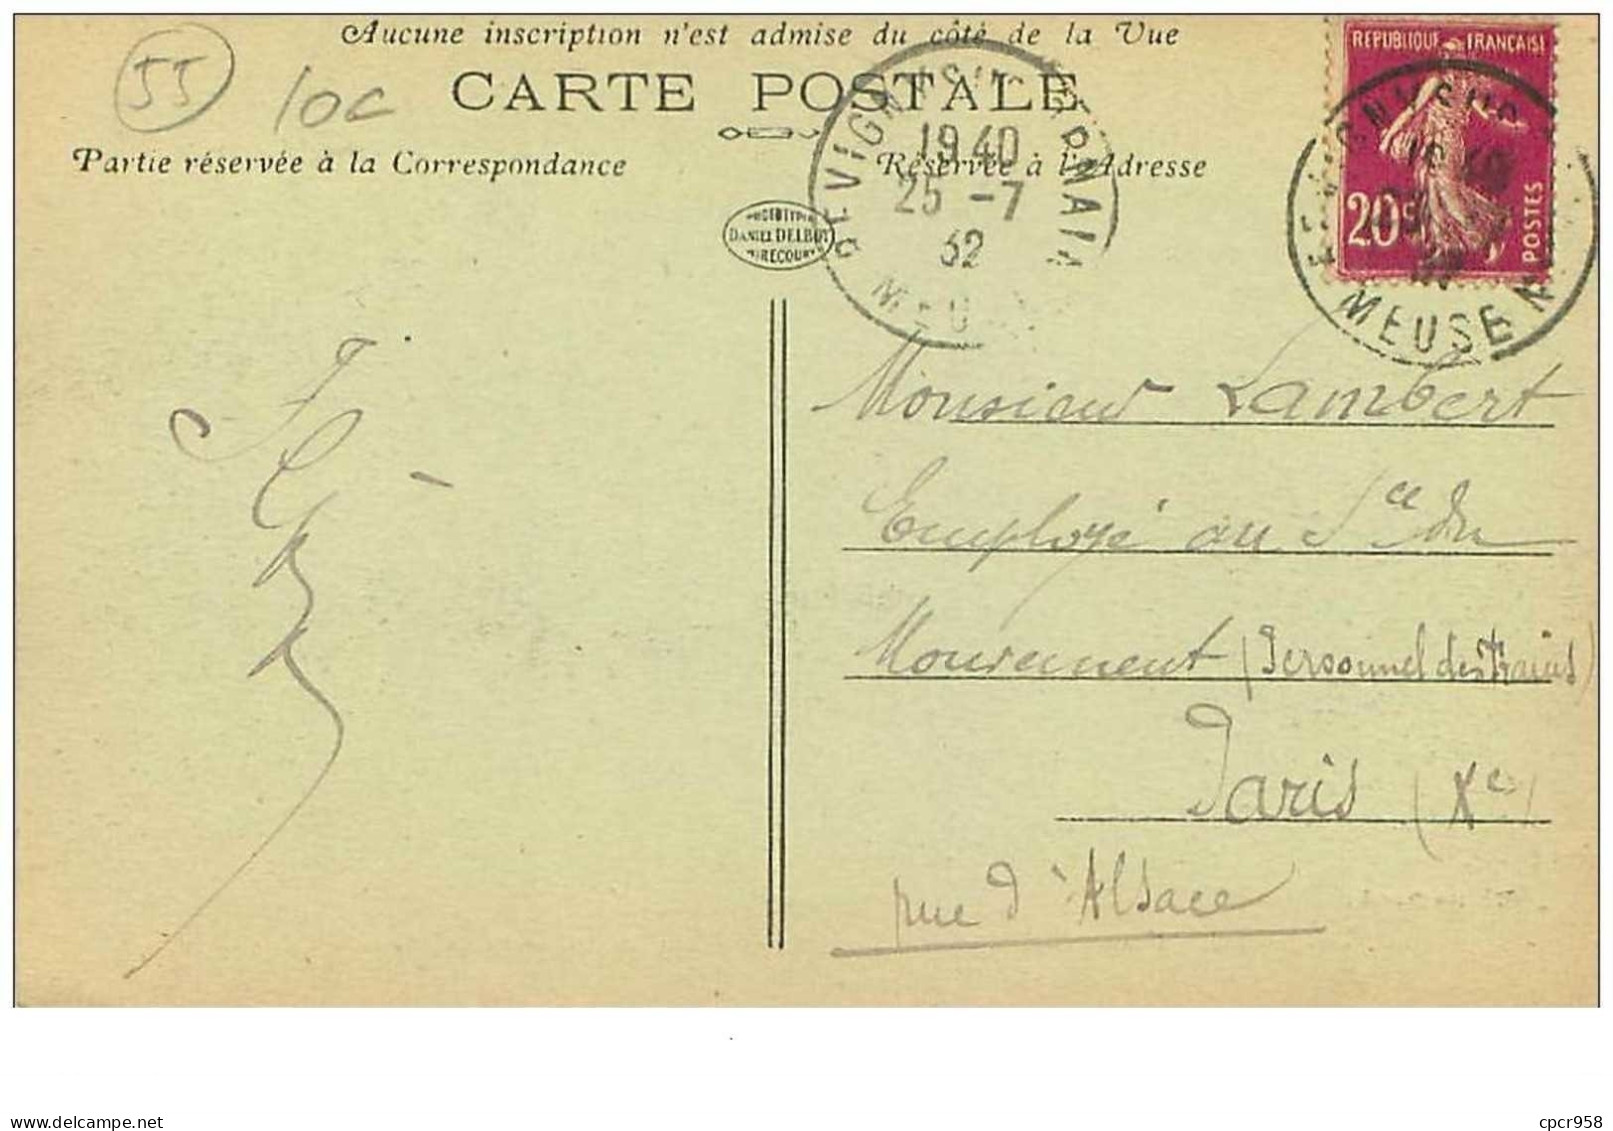 Aucune inscription n'est admise du côté de la Vue
55
10c
CARTE POSTALE
Partie réservée à la Correspondance
Réservée à l'Adresse
REVIGNY SUR ORNAIN
19 40
25 -7
32
MEU
REPUBLIQUE FRANÇAISE
20c
POSTES
MEUSE
DANIEL DELBOY
MIRECOURT
Monsieur Lambert
Employé au Sce du
Mouvement (Personnel des trains)
Paris (Xe)
rue d'Alsace
delcampe.net
cpcr958